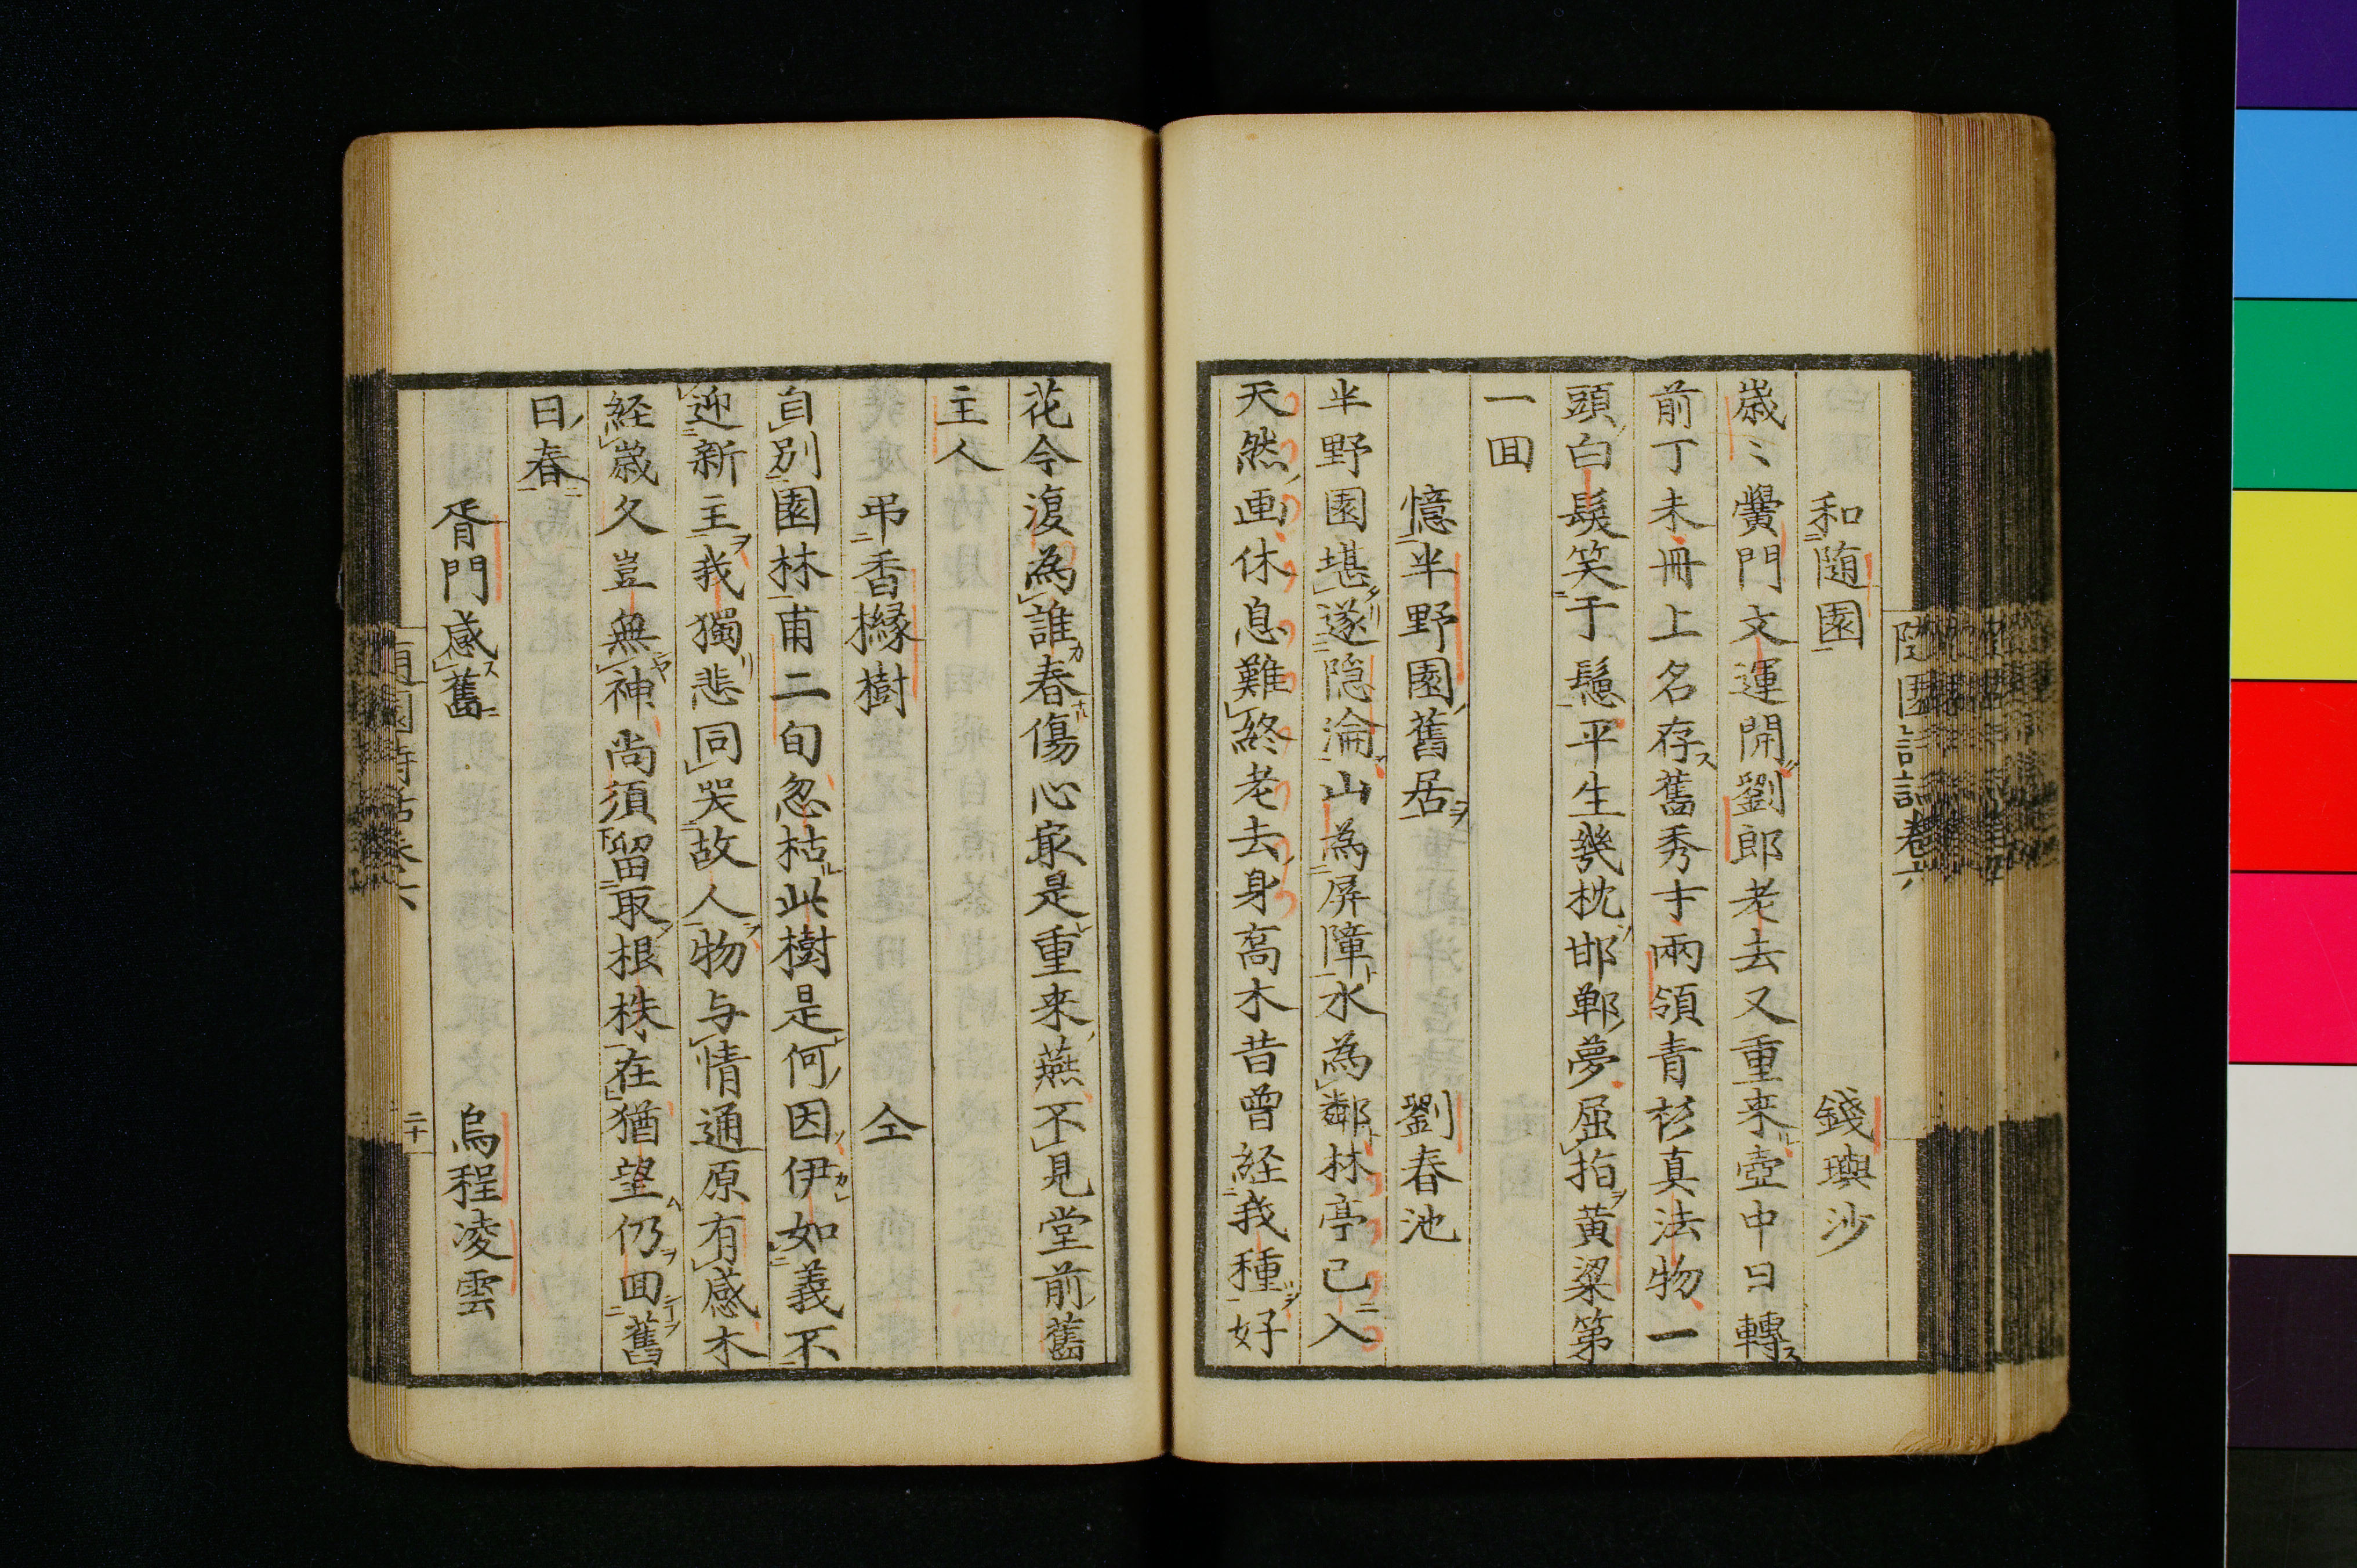 和随園 錢璵沙
歳〻黌門文運開劉郎老去又重来壺中日轉
前丁未冊上名存舊秀才兩領青衫真法物一
頭白髮笑于鬆平生幾枕邯鄲夢屈指黄粱第
一囬
憶半野園舊居 劉春池
半野園堪遂隠淪山為屏障水為鄰林亭已入
天然画休息難終老去身高木昔曽経我種好
花今復為誰春傷心最是重来燕不見堂前舊
主人
弔香櫞樹 仝
自別園林甫二旬忽枯此樹是何因伊如義不
迎新主我獨悲同哭故人物与情通原有感木
経歳久豈無神尚須留取根株在猶望仍囬舊
日春
胥門感舊 烏程凌雲
二十